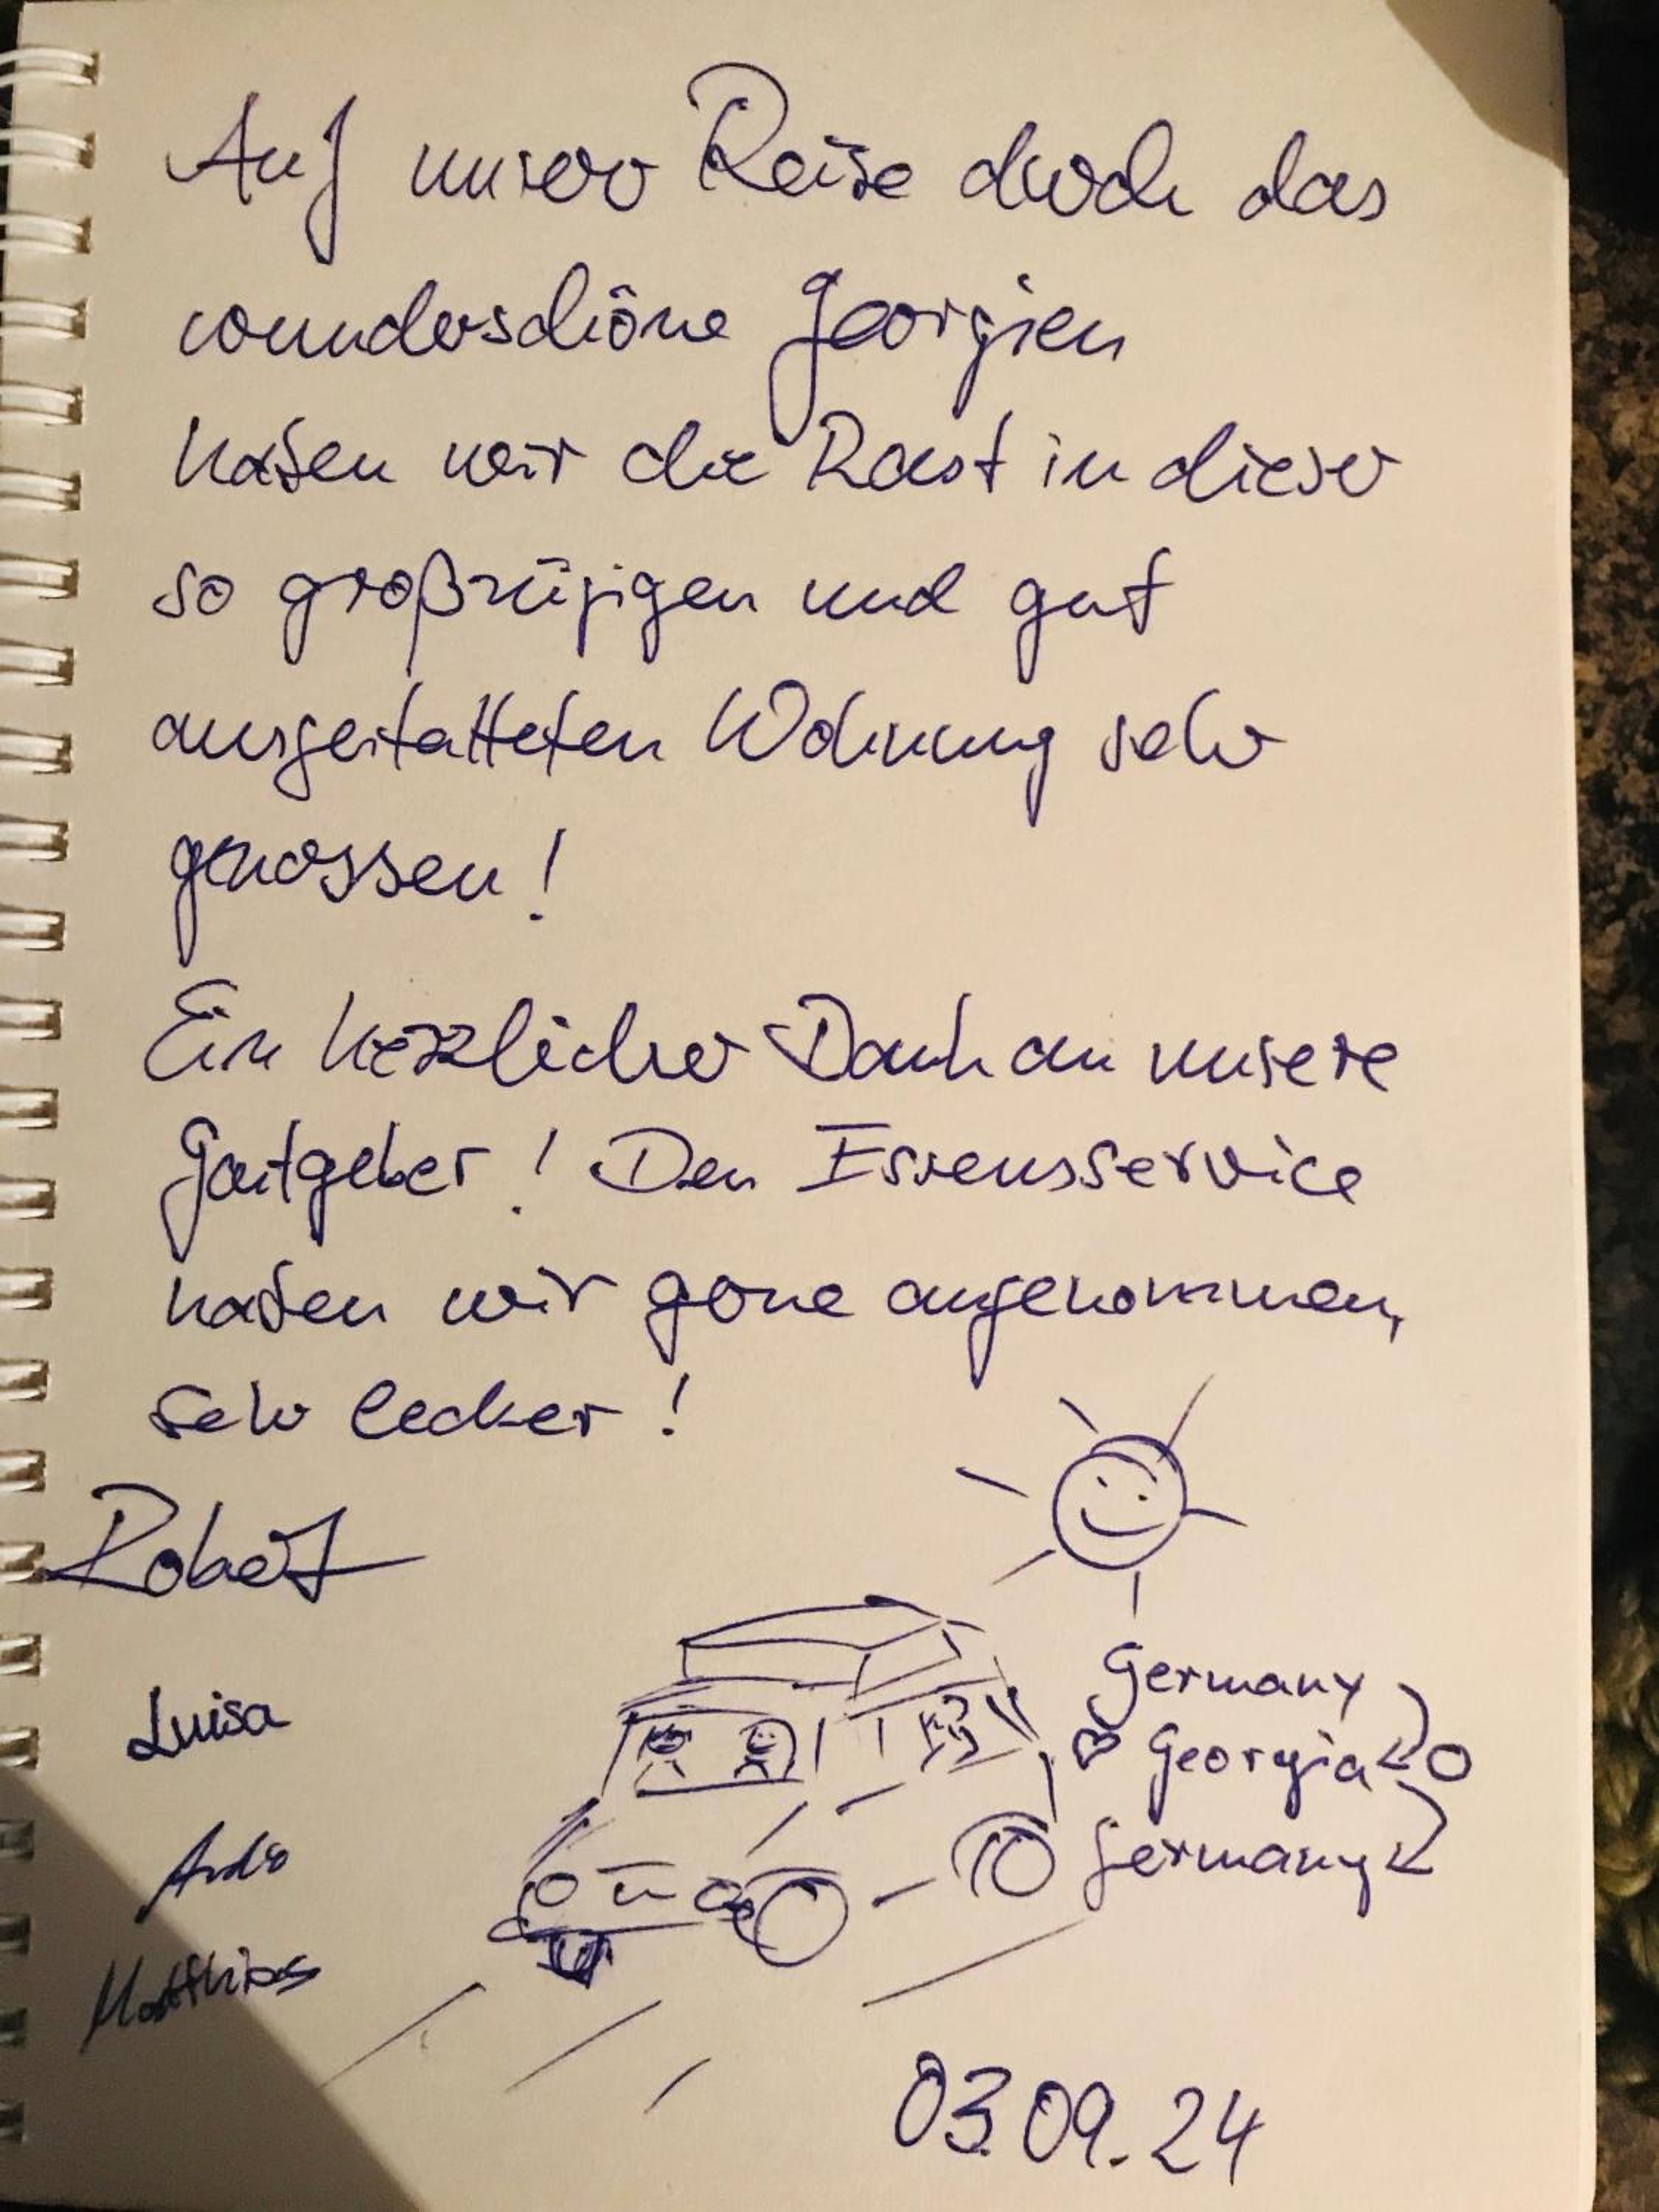 Auf unserer Reise durch das
wunderschöne Georgien
haben wir die Rast in dieser
so großzügigen und gut
ausgestatteten Wohnung sehr
genossen!
Ein herzlicher Dank an unsere
Gastgeber! Den Essensservice
haben wir gerne angenommen,
sehr lecker!
Robert
Luisa
Matthias
Germany
Georgia
Germany
03.09.24